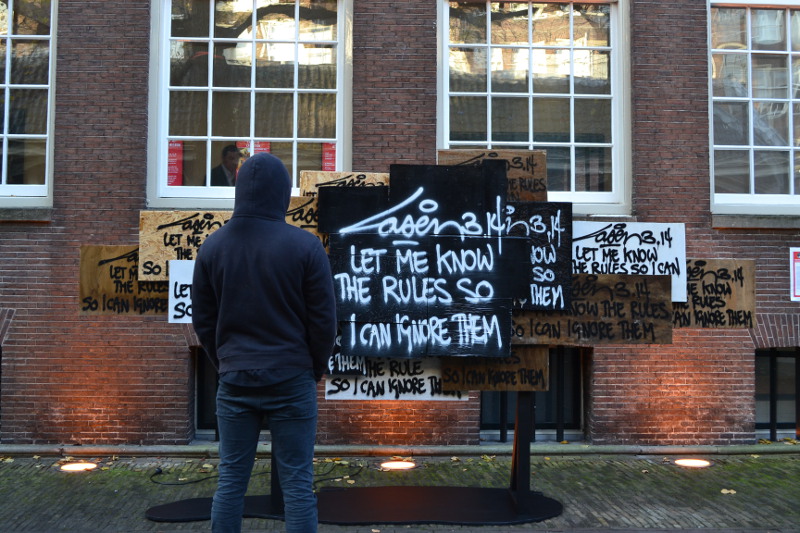 Laser 3.14
LET ME KNOW
THE RULES SO
I CAN IGNORE THEM
Laser 3.14
LET ME
SO I
LET
SO
Laser
LET ME KN
SO I CAN IGNORE
in 3.14
NOW
SO
THEM
Laser 3.14
LET ME KNOW
THE RULES SO I CAN
Laser 3.14
ME KNOW
RULES SO
IGNORE THEM
3.14
ME KNOW THE RULES
SO I CAN IGNORE THEM
THEM
THE RULE
SO I CAN IGNORE THEM
SO I CAN IGNORE THEM
3.14